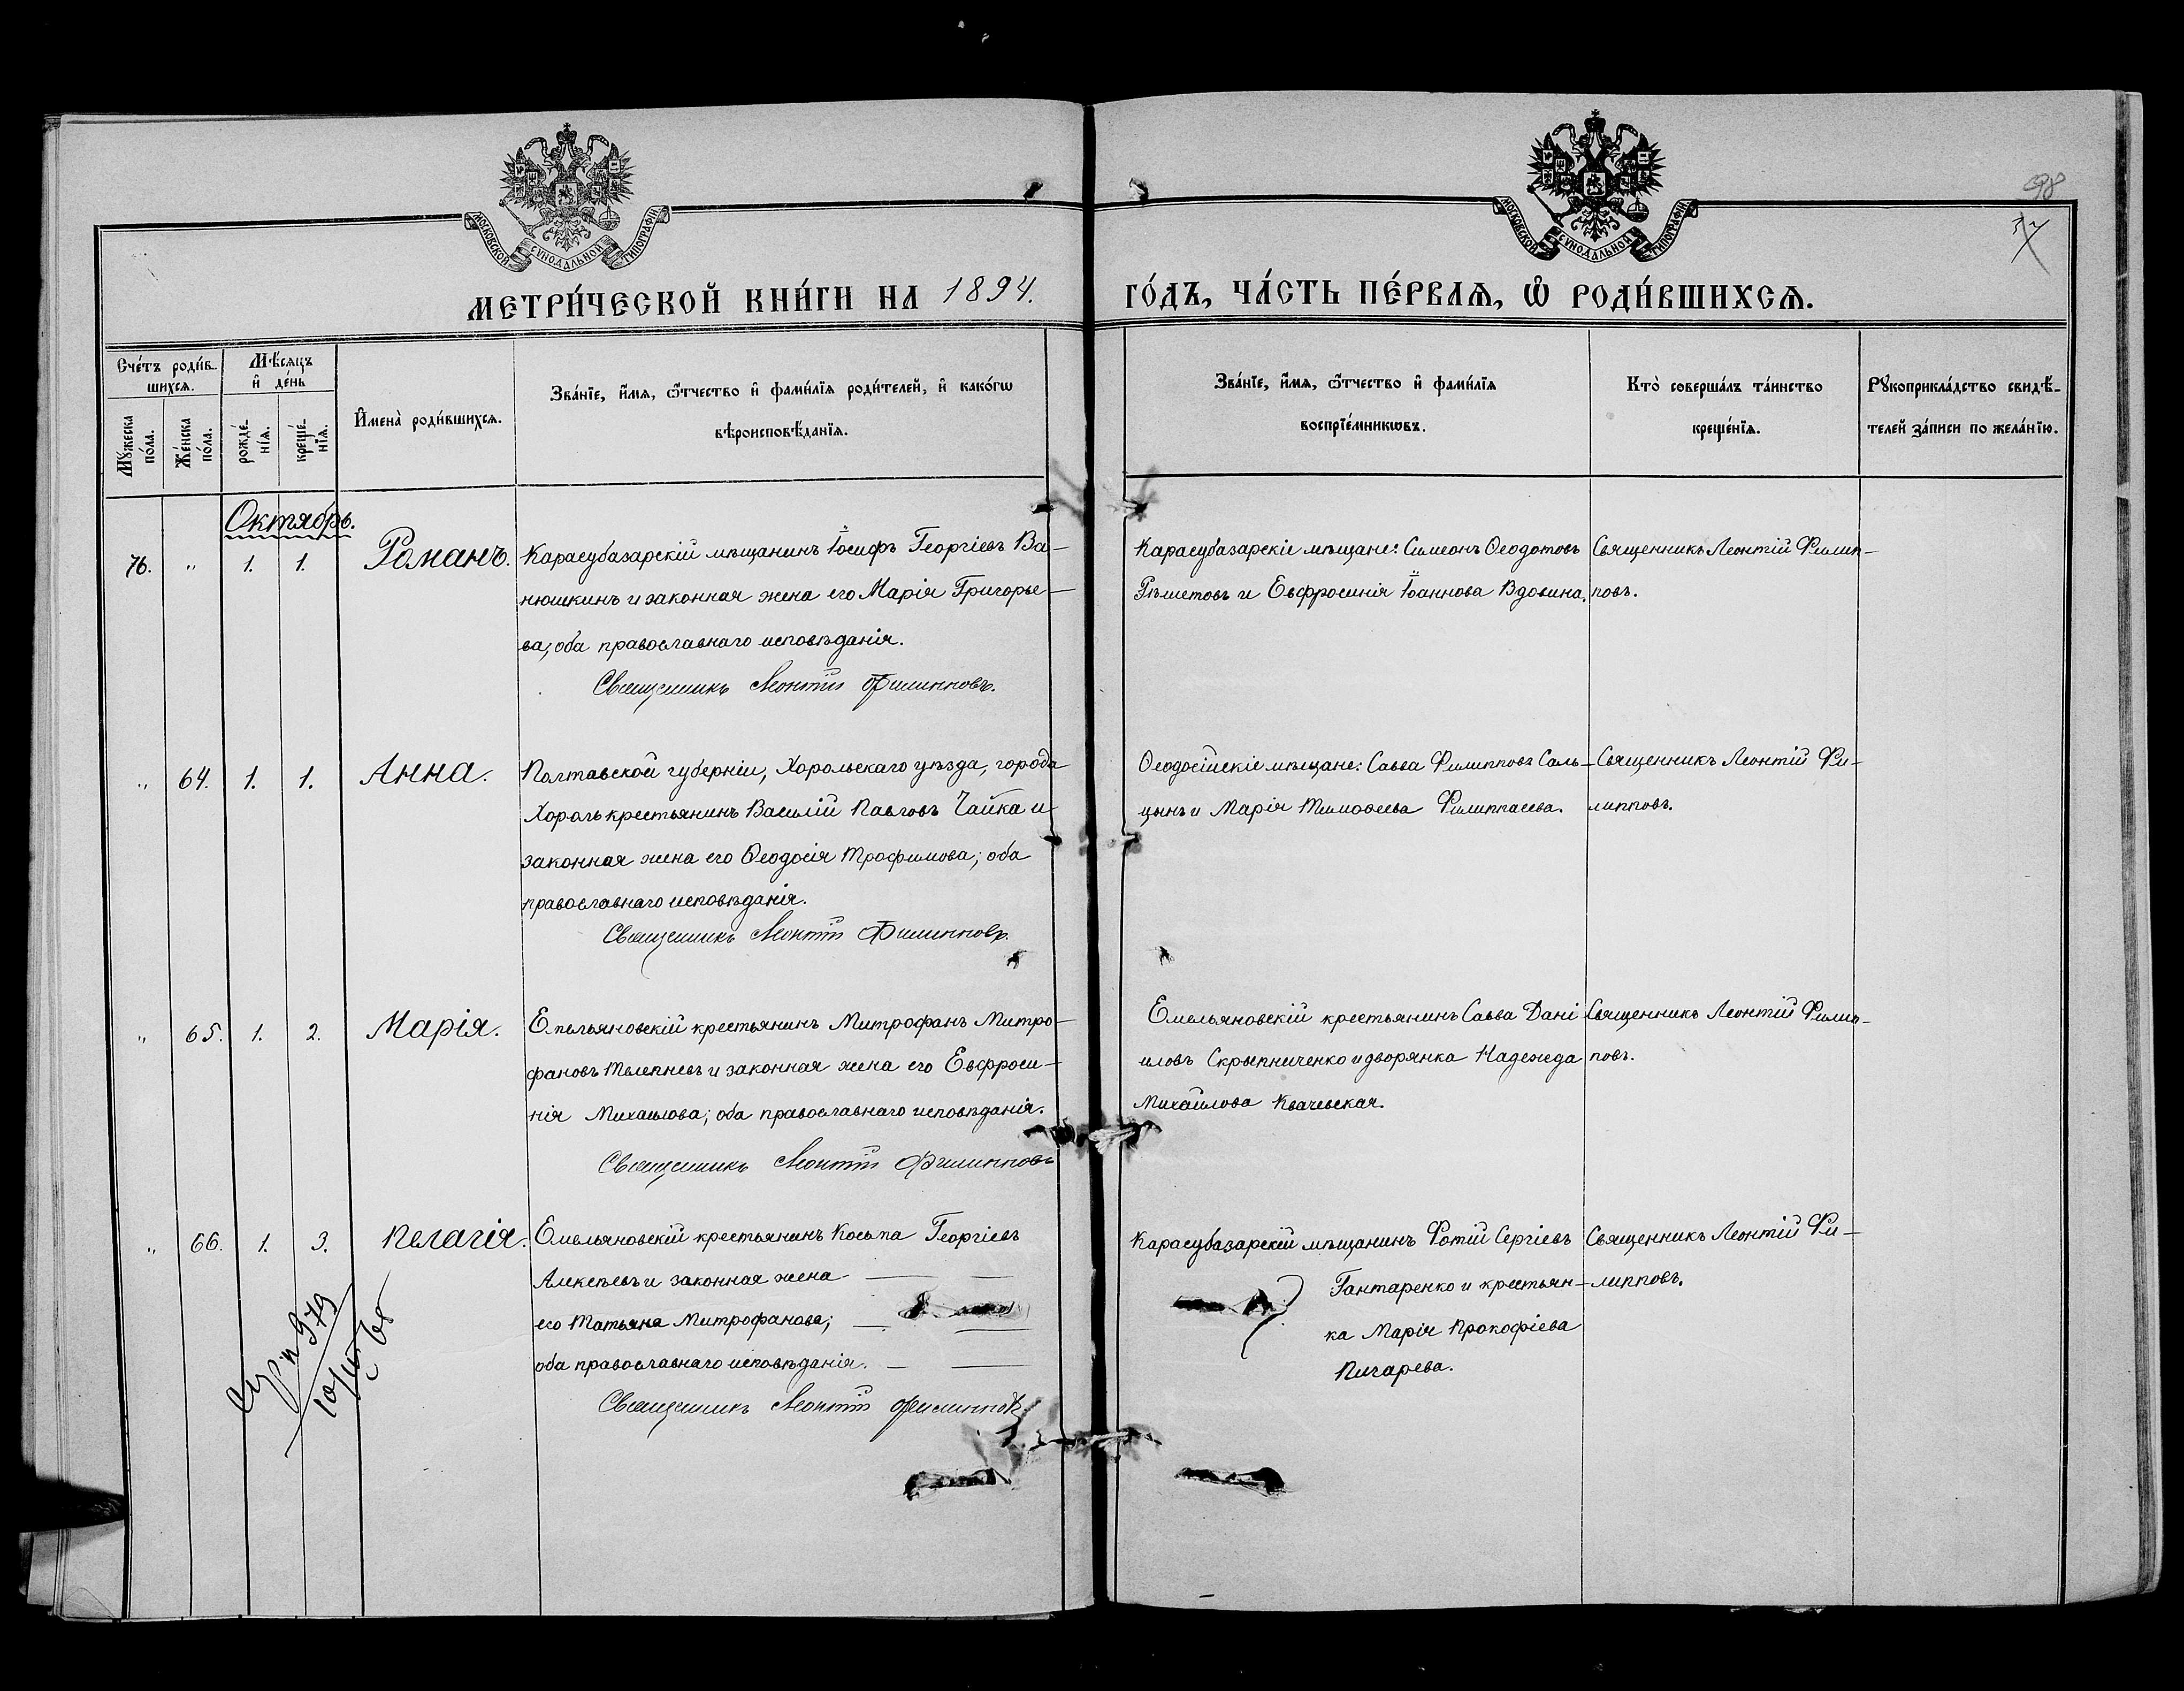 МОСКОВСКОЙ СѴНОДАЛЬНОЙ ТИПОГРАФІИ
МОСКОВСКОЙ СѴНОДАЛЬНОЙ ТИПОГРАФІИ
98
37
МЕТРИ́ЧЕСКОЙ КНИ́ГИ НА 1894.
ГО́ДЪ, ЧА́СТЬ ПЕ́РВАѦ, Ѡ҆ РОДИ́ВШИХСѦ.
Сче́тъ роди́в-
шихсѧ.
Мѣ́сѧцъ
и҆ де́нь
Мꙋ́жеска
по́ла.
Же́нска
по́ла.
рожде́-
нїѧ.
креще́-
нїѧ.
И҆мена̀ роди́вшихсѧ.
Зва́нїе, и҆́мѧ, ѻ҆́тчество и҆ фами́лїѧ роди́телей, и҆ како́гѡ
вѣроисповѣ́данїѧ.
Зва́нїе, и҆́мѧ, ѻ҆́тчество и҆ фами́лїѧ
воспрїе́мникѡвъ.
Кто̀ соверша́лъ та́инство
креще́нїѧ.
Рꙋкоприкла́дство свидѣ́-
телей за́писи по жела́нїю.
Октябрь.
76. " 1. 1. Романъ.
Карасубазарскій мѣщанинъ Іосифъ Георгіевъ Ва-
нюшкинъ и законная жена его Марія Григорье-
ва; оба православнаго исповѣданія.
Священникъ Леонтій Филипповъ.
Карасубазарскіе мѣщане: Симеонъ Ѳеодотовъ
Рѣшетовъ и Евфросинія Іоаннова Вдовина.
Священникъ Леонтій Филип-
повъ.
" 64. 1. 1. Анна.
Полтавской губерніи, Хорольскаго уѣзда, города
Хороль крестьянинъ Василій Павловъ Чайка и
законная жена его Ѳеодосія Трофимова; оба
православнаго исповѣданія.
Священникъ Леонтій Филипповъ.
Ѳеодосійскіе мѣщане: Савва Филипповъ Саль-
цынъ и Марія Тимоѳеева Филиппасева.
Священникъ Леонтій Фи-
липповъ.
" 65. 1. 2. Марія.
Емельяновскій крестьянинъ Митрофанъ Митро-
фановъ Телепневъ и законная жена его Евфроси-
нія Михаилова; оба православнаго исповѣданія.
Священникъ Леонтій Филипповъ
Емельяновскій крестьянинъ Савва Дані-
иловъ Скрыпниченко и дворянка Надежда
Михайлова Квачевская.
Священникъ Леонтій Филип-
повъ.
" 66. 1. 3. Пелагія.
Емельяновскій крестьянинъ Косьма Георгіевъ
Алексѣевъ и законная жена
его Татьяна Митрофанова;
оба православнаго исповѣданія.
Священникъ Леонтій Филипповъ
Карасубазарскій мѣщанинъ Фотій Сергіевъ
Гантаренко и крестьян-
ка Марія Прокофіева
Пичарева.
Священникъ Леонтій Фи-
липповъ.